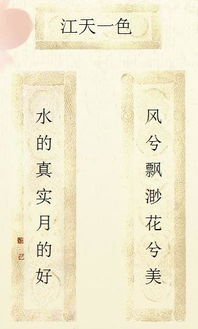 江天一色
风兮飘渺花兮美
水的真实月的好